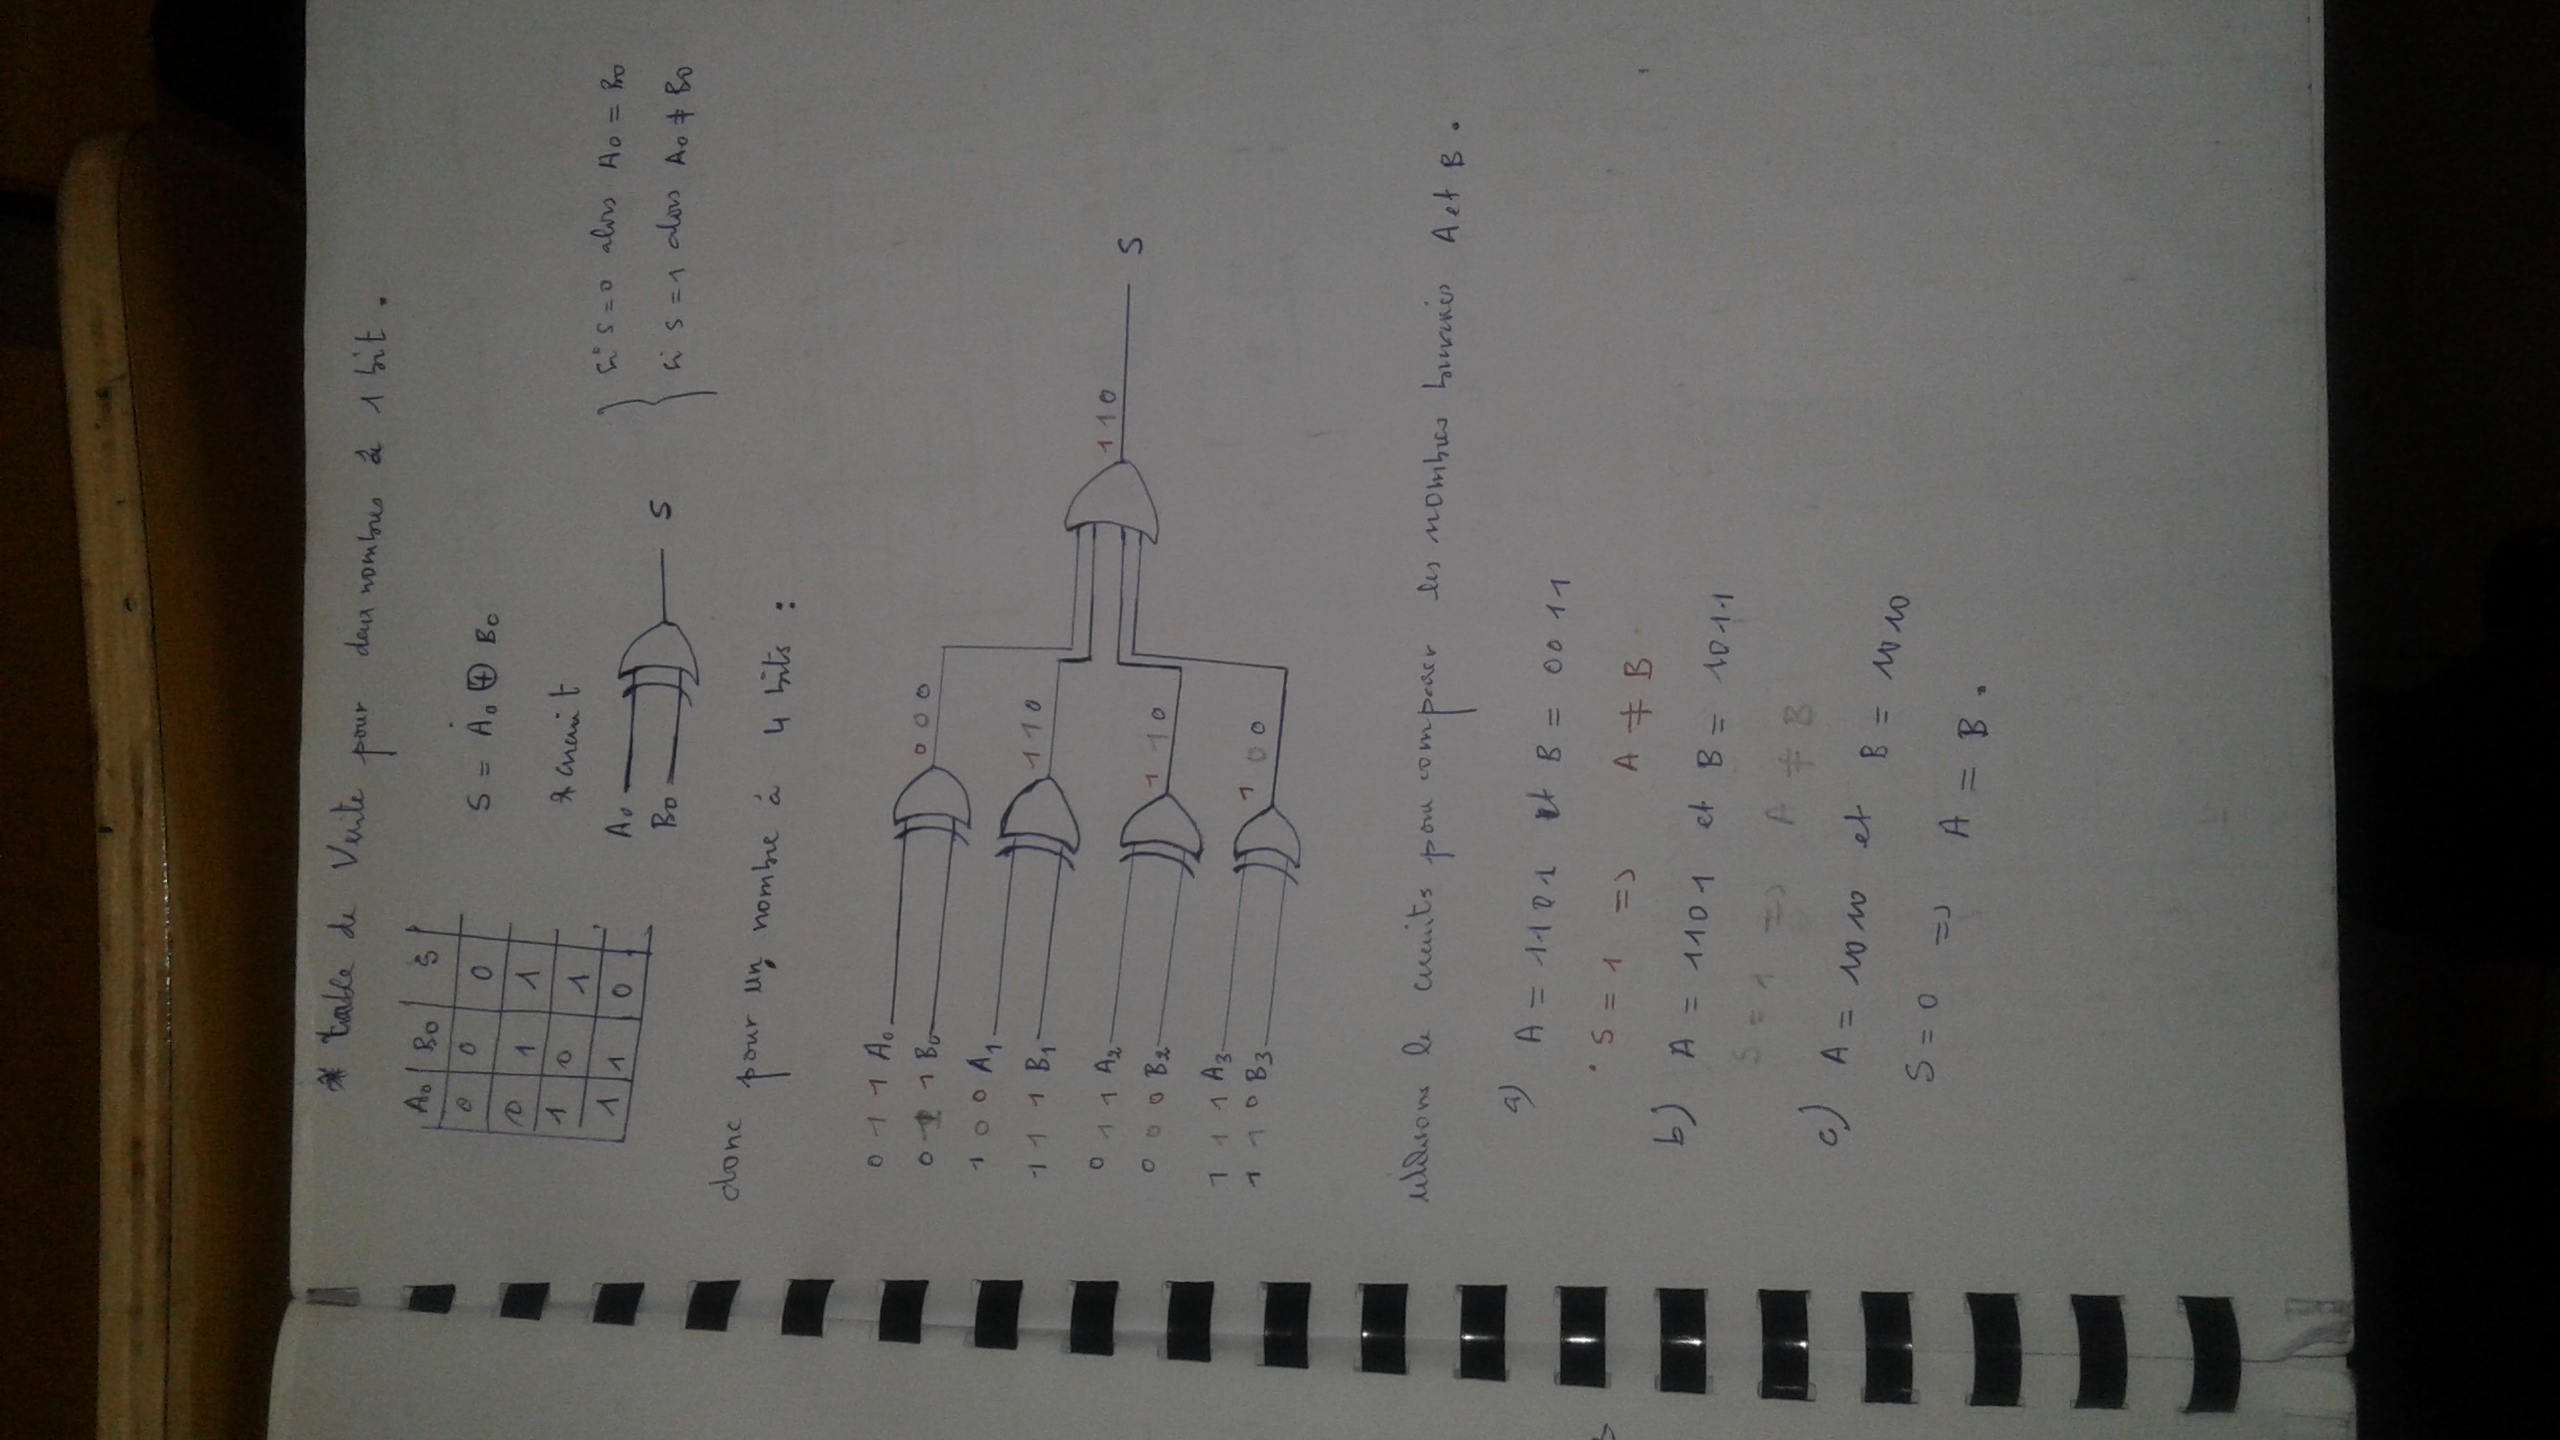 * table de Verite pour deux nombres à 1 bit .
A0 B0 S
0 0 0
0 1 1
1 0 1
1 1 0
S = A0 ⊕ B0
* circuit
A0
B0
S
si S = 0 alors A0 = B0
si S = 1 alors A0 ≠ B0
donc pour un nombre à 4 bits :
0 1 1 A0
0 1 1 B0
0 0 0
1 0 0 A1
1 1 1 B1
1 1 0
0 1 1 A2
0 0 0 B2
1 1 0
1 1 1 A3
1 1 0 B3
1 0 0
1 1 0
S
utilisons le circuits pour comparer les nombres binaires A et B .
a) A = 1101 et B = 0011
S = 1 => A ≠ B
b) A = 1101 et B = 1011
S = 1 => A ≠ B
c) A = 1010 et B = 1010
S = 0 => A = B .